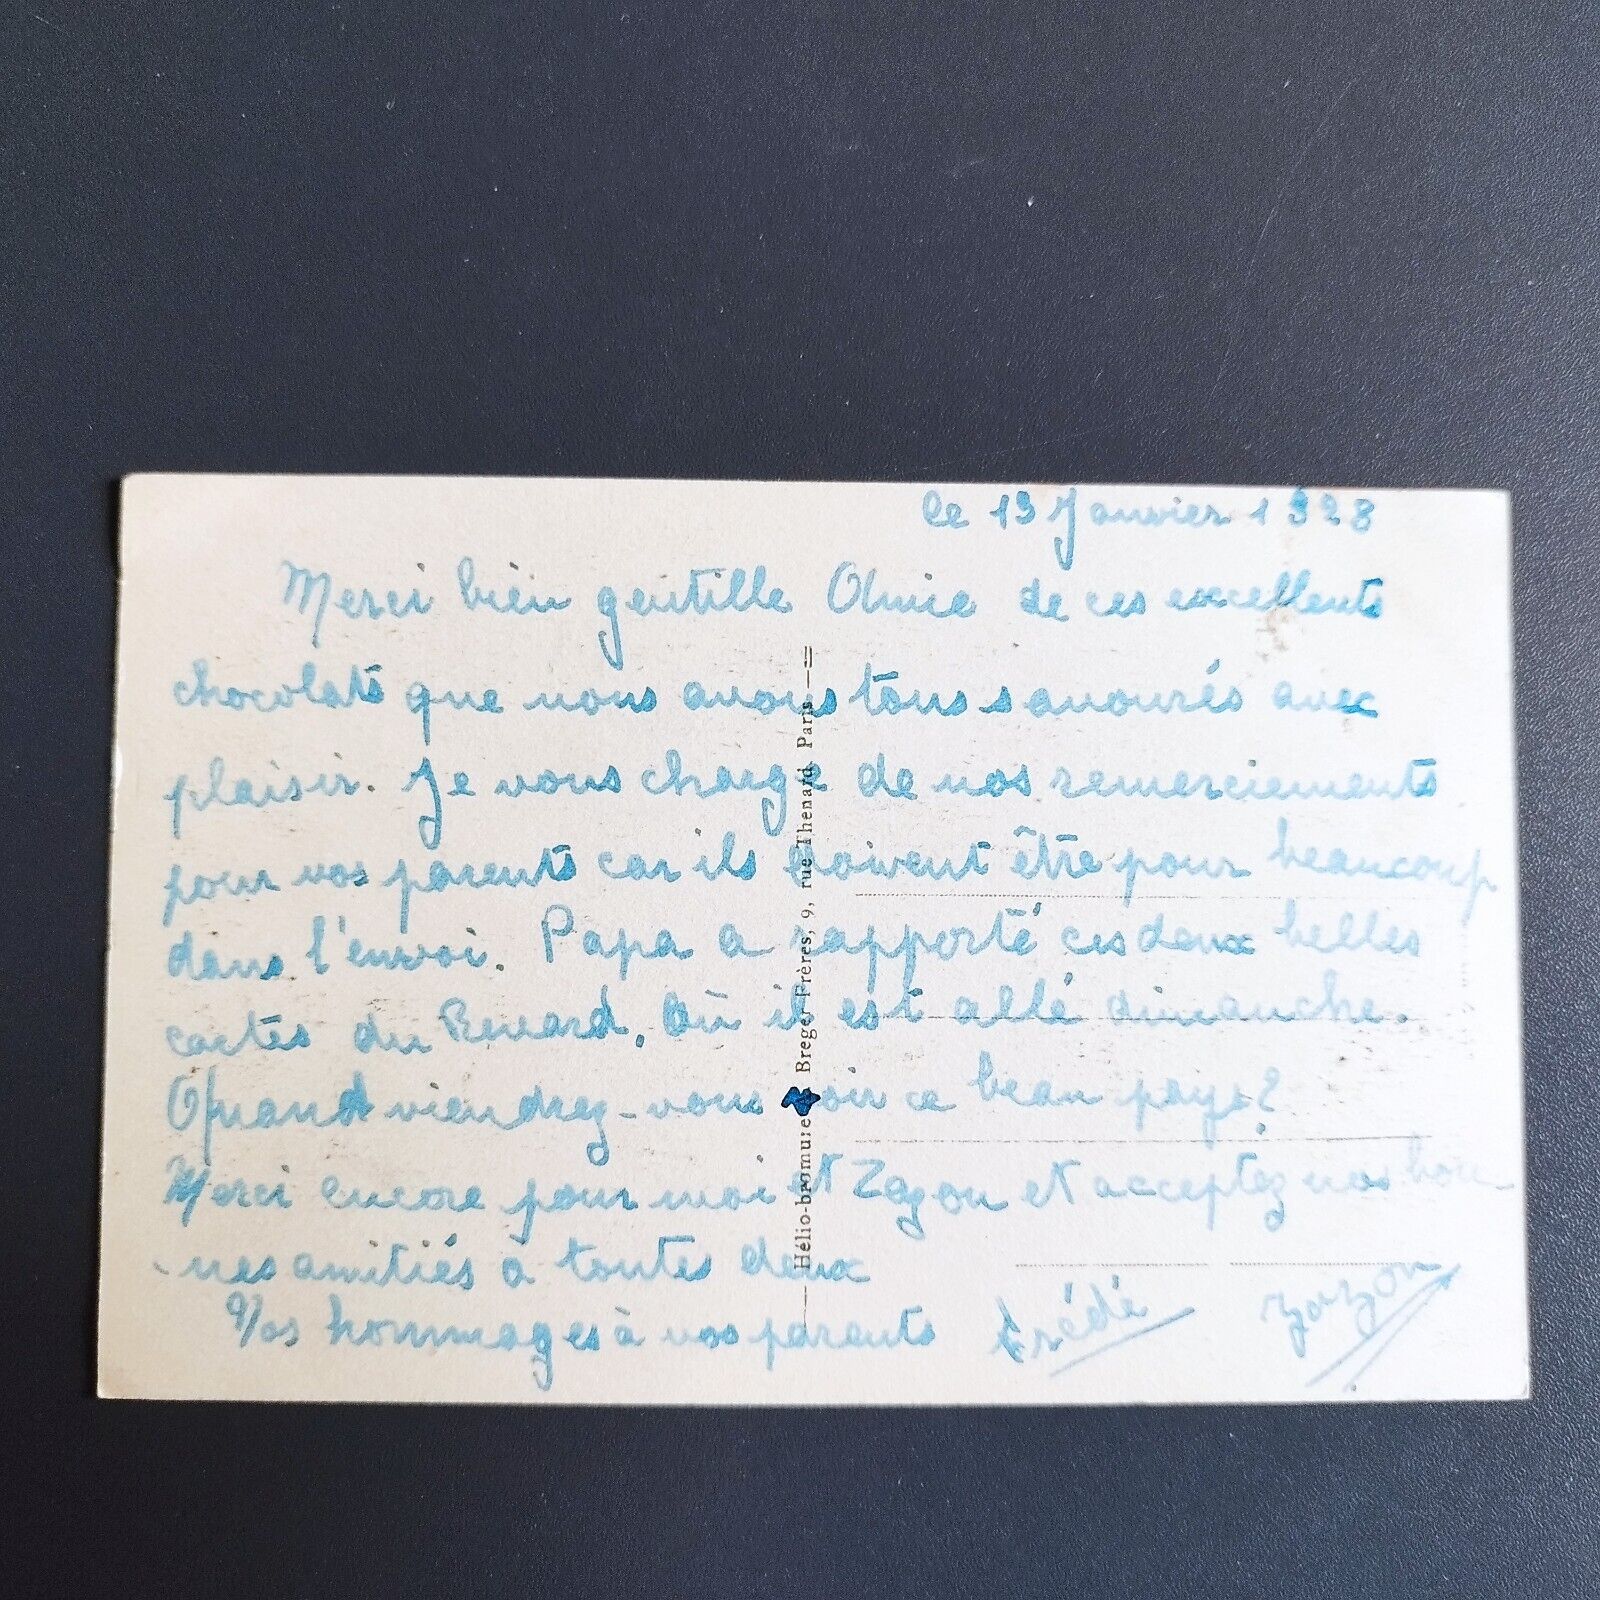 le 13 Janvier 1928
Merci bien gentille Olnie de ces excellents
chocolats que nous avons tous savourés avec
plaisir. Je vous charge de nos remerciements
pour vos parents car ils doivent être pour beaucoup
dans l'envoi. Papa a rapporté ces deux belles
cartes du Revard, où il est allé dimanche.
Quand viendrez-vous voir ce beau pays?
Merci encore pour moi et Zazon et acceptez nos bon-
nes amitiés à toutes deux
Nos hommages à vos parents Frédé Zazon
Hélio-bromure Breger Frères, 9, rue Thenard, Paris